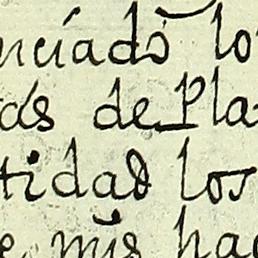 nciado lo
as de Pla
tidad los
e mis hac